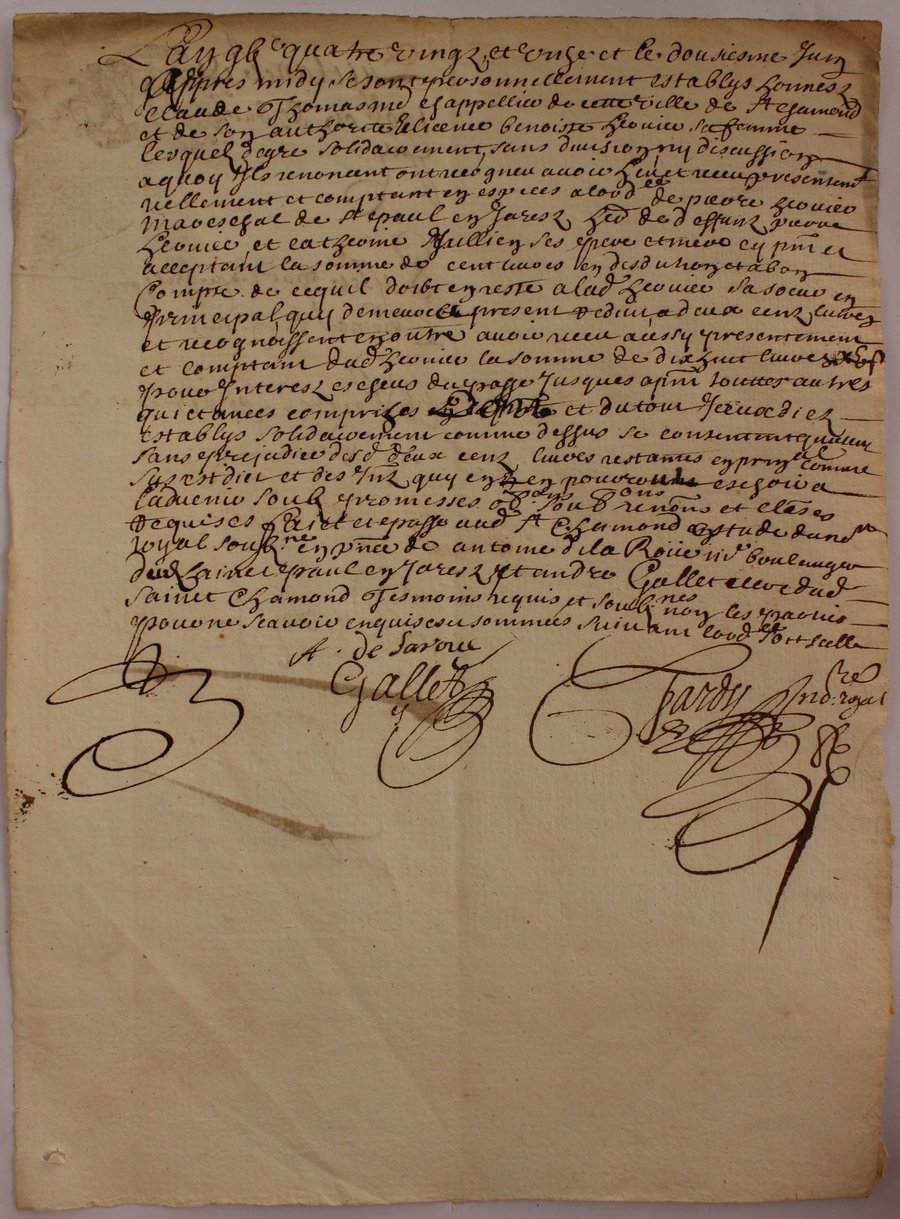 L'an gbc quatre vingz et onze et le dousiesme Juin
apres midy se sont personnellement establys honneste
Claude Thomas me chappellier de cette ville de St Chamond
et de son authorité et licence benoiste sa femme
lesquelz de gre solidairement sans division ny discussion
a quoy Ils renoncent ont recogneu avoir heu et receu presentemt
reellement et comptant en especes a lood de pierre
mareschal de St paul en Jarez her de deffunt pierre
et Catherine Jullien ses pere et mere cy pnt et
acceptant la somme de cent livres en desduction et a bon
compte de ce quil doibt en reste a lad sa soeur en
principal quy demeure a present reduit a deux cent livres
et recognoissent en outre avoir receu aussy presentement
et comptant dud la somme de dix huit livres
pour Interestz escheus du passe jusques a pnt touttes autres
quictances comprizes et du tout Iceux dictz
establys solidairement comme dessus se contentent
sans prejudice desd deux centz livres restantes en prinal comme
sus est dict et des Intz quy en pourront escheoir a
ladvenir soubz promesses obons soubons renons et clauses
requises faict et passe aud St Chamond estude du nore
royal soubne en pnce de antoine de la Roüe me boulanger
dud Sainct paul en Jarez et andre Gallet clerc dud
Sainct Chamond tesmoins requis et soubnes non les parties
pour ne scavoir enquises et sommees suivant lood et scelle
A. de Laroue
Gallet
Hardy nore royal